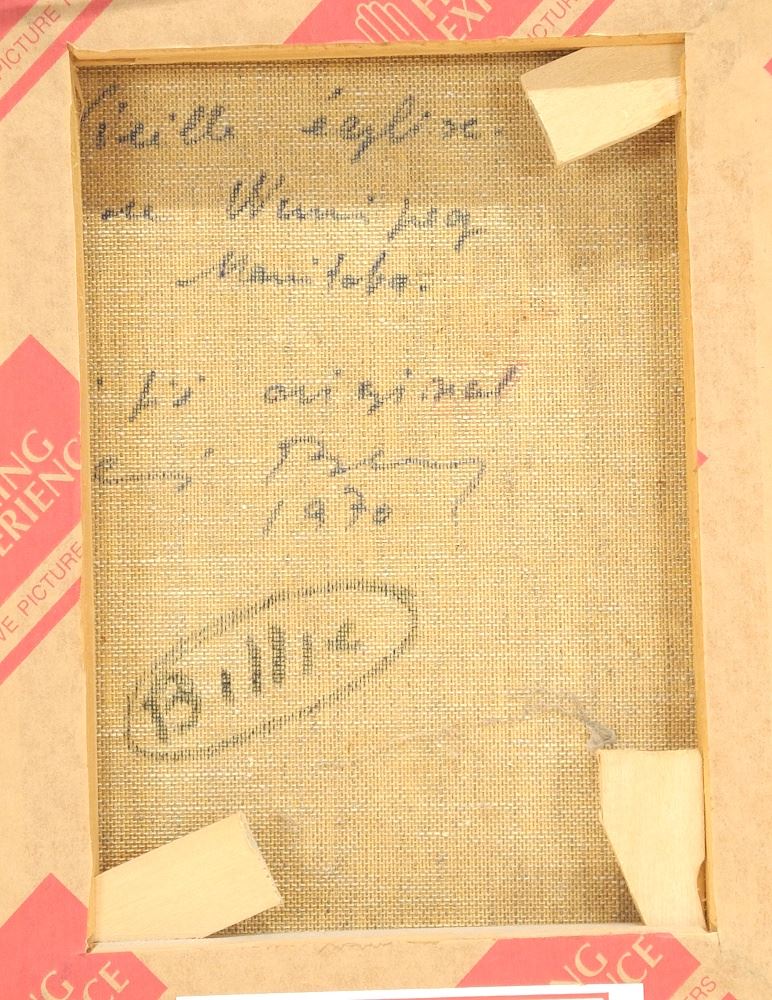 PICTURE
Vieille église.
au Winnipeg
Manitoba.
original
1970
Billie
ING
ERIENC
VE PICTURE
NG
NCE
ING
ENCE
RS